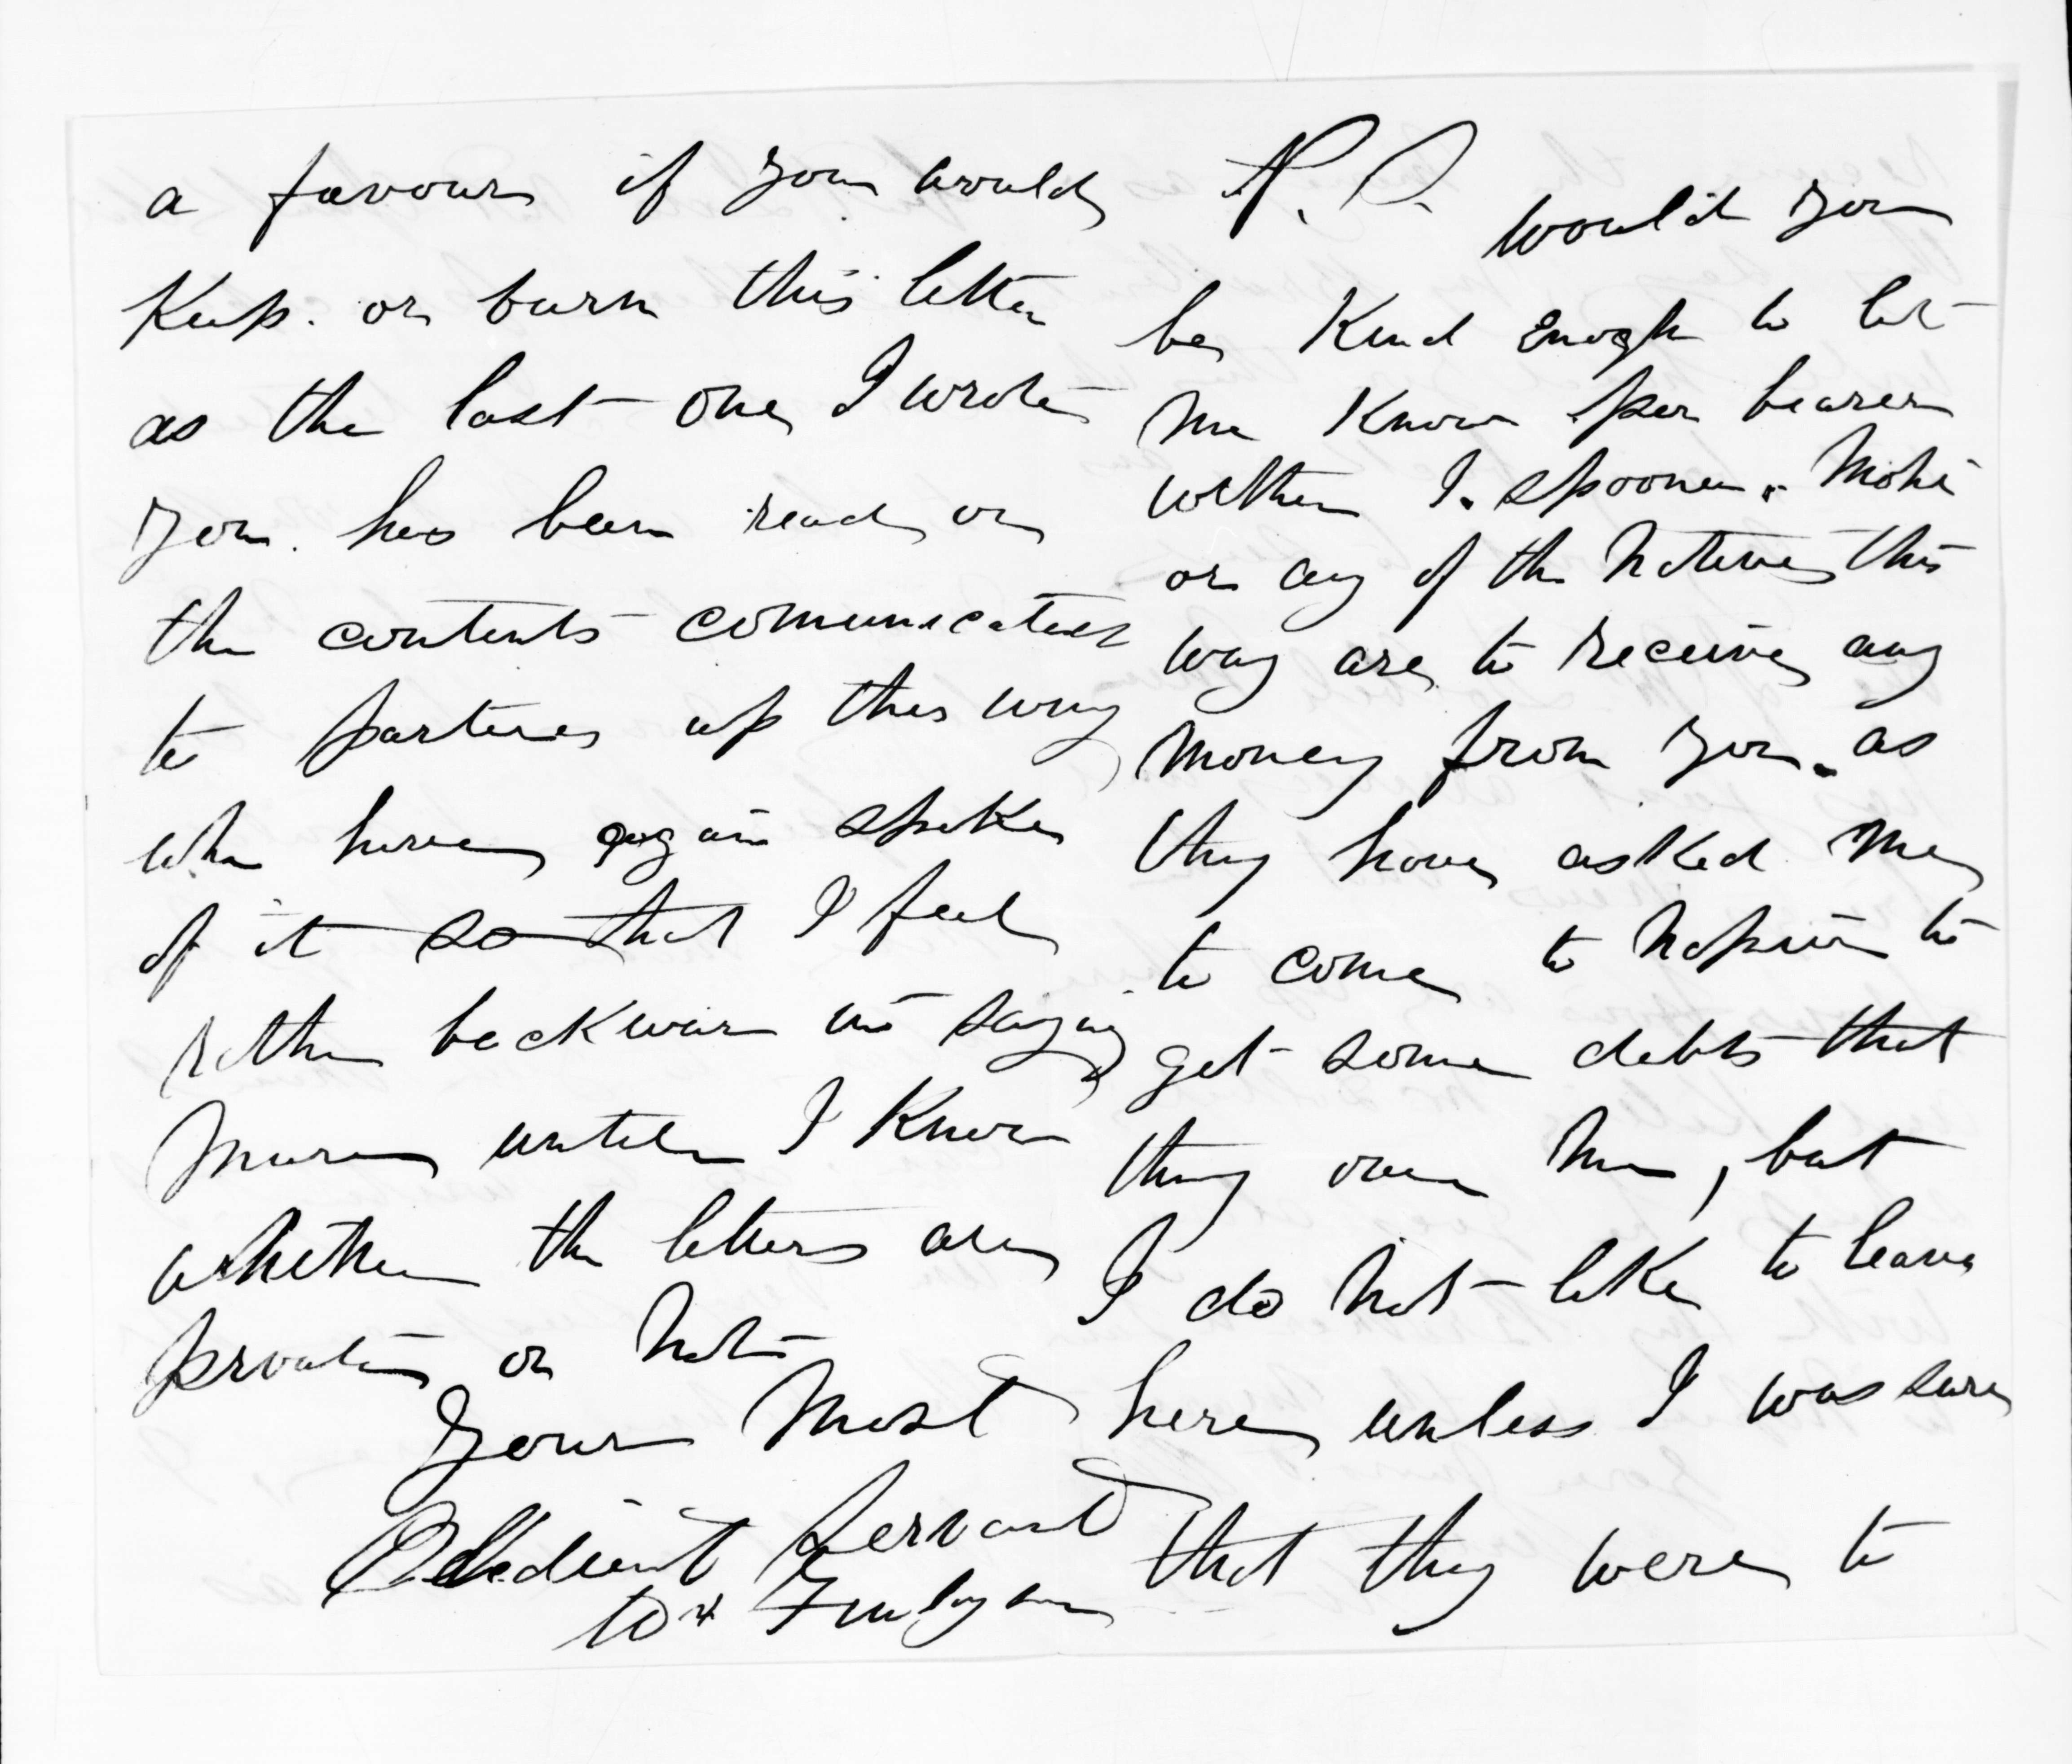 a favour if you would
Keep. or burn this letter
as the last one I wrote
you. has been read or
the contents comunicated
to parties up this way
who have again spoke
of it so that I feel
rather backwar in saying
more until I know
whether the letters are
private or not
Your most
Obedient Servant
Wm Finlayson
P.S. would you
be Kind enogh to let
me Know per bearer
wether I. Spooner. Mohi
or any of the Natives this
way are to receive any
money from you. as
they have asked me
to come to Napier to
get some debts that
they owe me, but
I do not like to leave
here unless I was sure
that they were to